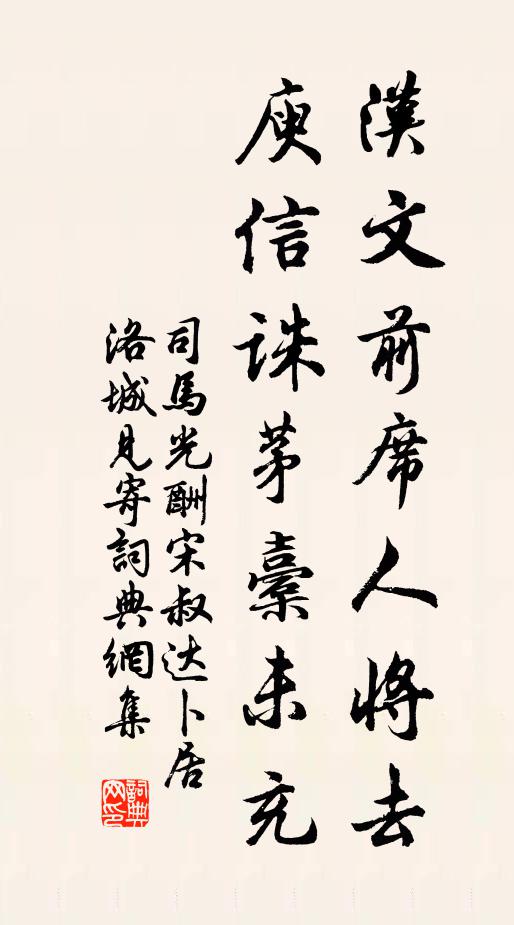 漢文前席人將去
庾信誅茅橐未充
司馬光酬宋叔达卜居
洛城見寄詞典網集
詞典网印